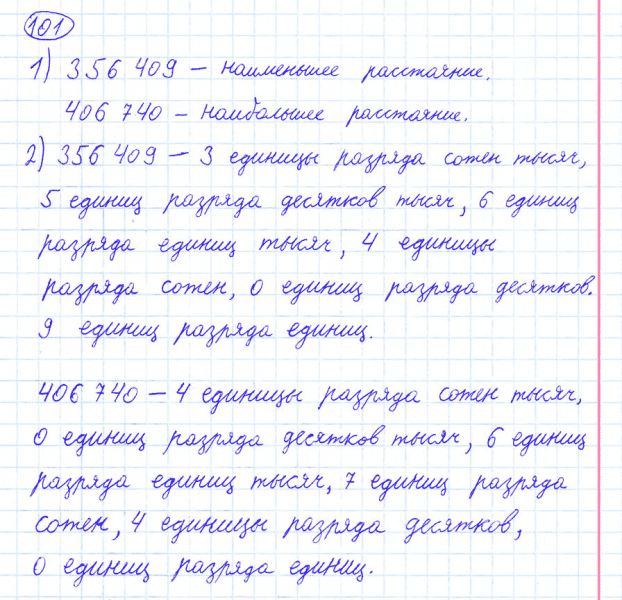 101
1) 356 409 — наименьшее расстояние.
406 740 — наибольшее расстояние.
2) 356 409 — 3 единицы разряда сотен тысяч,
5 единиц разряда десятков тысяч, 6 единиц
разряда единиц тысяч, 4 единицы
разряда сотен, 0 единиц разряда десятков.
9 единиц разряда единиц.
406 740 — 4 единицы разряда сотен тысяч,
0 единиц разряда десятков тысяч, 6 единиц
разряда единиц тысяч, 7 единиц разряда
сотен, 4 единицы разряда десятков,
0 единиц разряда единиц.